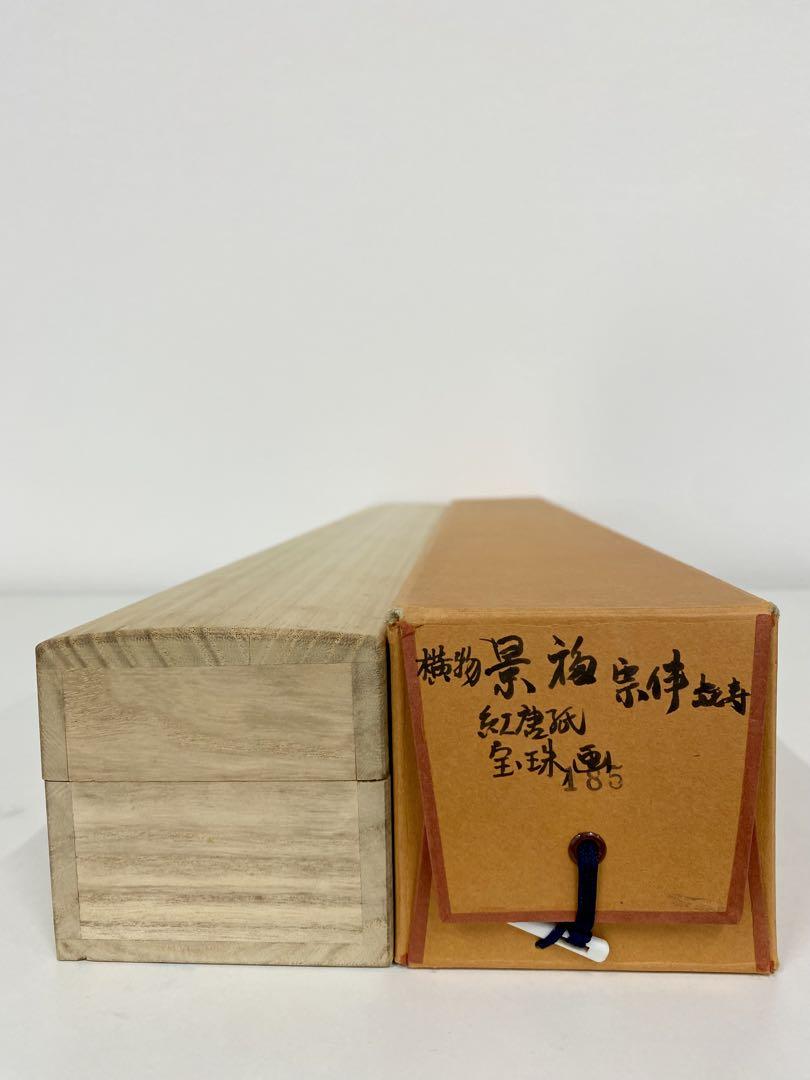 横物 景福 宗伴 喜寿
紅唐紙
宝珠画
185